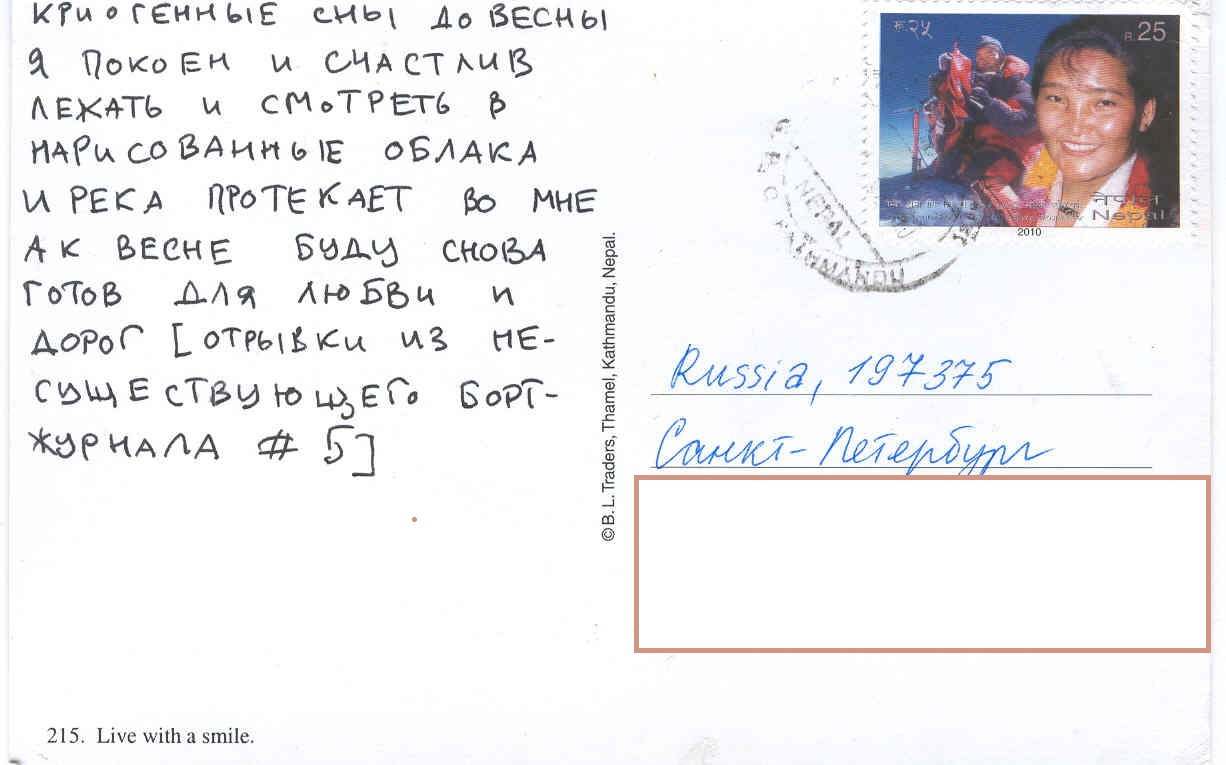 КРИОГЕННЫЕ СНЫ ДО ВЕСНЫ
Я ПОКОЕН И СЧАСТЛИВ
ЛЕЖАТЬ И СМОТРЕТЬ В
НАРИСОВАННЫЕ ОБЛАКА
И РЕКА ПРОТЕКАЕТ ВО МНЕ
А К ВЕСНЕ БУДУ СНОВА
ГОТОВ ДЛЯ ЛЮБВИ И
ДОРОГ [ОТРЫВКИ ИЗ НЕ-
СУЩЕСТВУЮЩЕГО БОРТ-
ЖУРНАЛА # 5]
215. Live with a smile.
© B. L. Traders, Thamel, Kathmandu, Nepal.
रू.२५
R 25
नेपाल
Nepal
2010
NEPAL
KATHMANDU
Russia, 197375
Санкт-Петербург